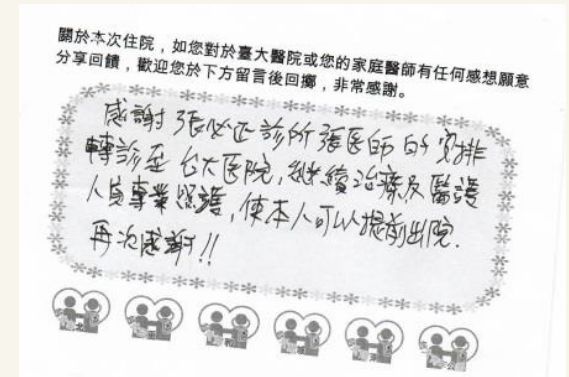 關於本次住院，如您對於臺大醫院或您的家庭醫師有任何感想願意
分享回饋，歡迎您於下方留言後回擲，非常感謝。
感謝張必正診所張医師的安排
轉診至台大医院，繼續治療及醫護
人員專業照護，使本人可以提前出院.
再次感謝!!